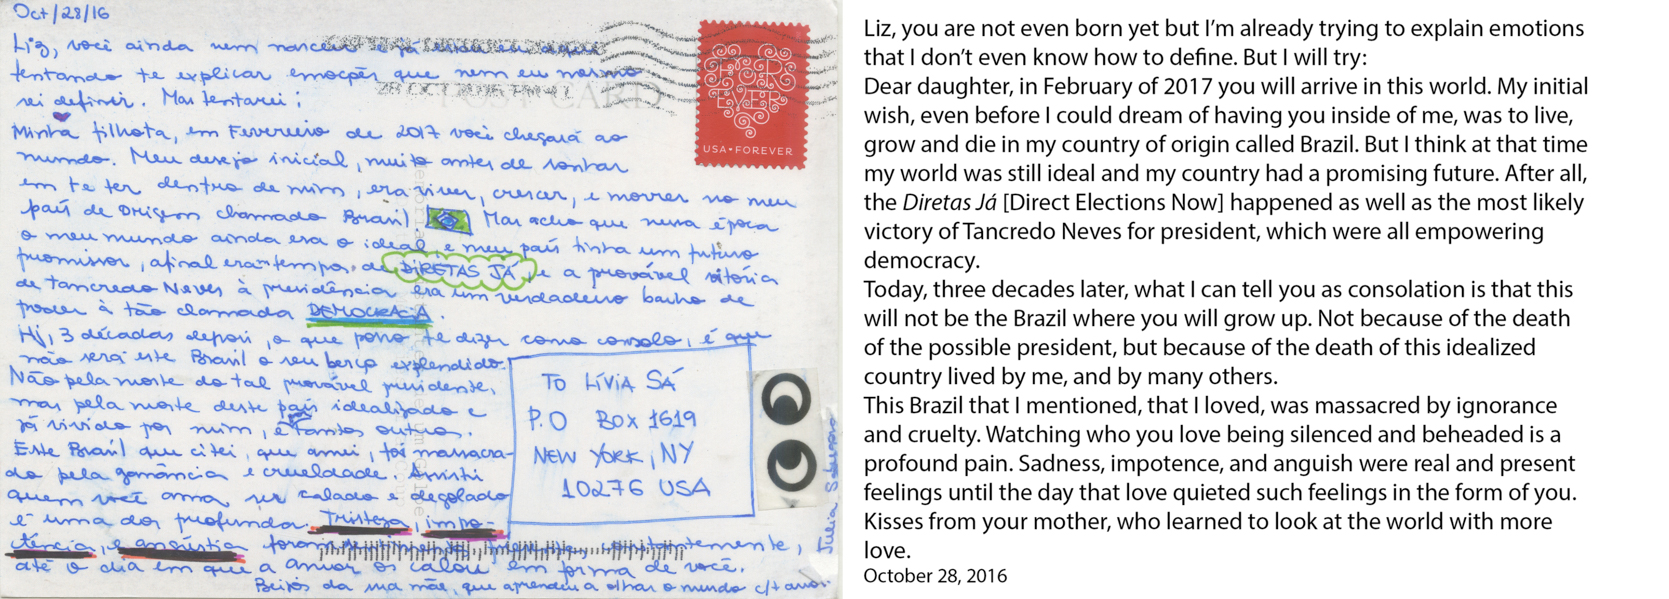 Oct/28/16
Liz, você ainda nem nasceu e já estou eu aqui
tentando te explicar emoções que nem eu mesmo
sei definir. Mas tentarei:
28 OCT 2016 PM
POST CARD
FOR
EVER
USA • FOREVER
Minha filhota, em Fevereiro de 2017 você chegará ao
mundo. Meu desejo inicial, muito antes de sonhar
em te ter dentro de mim, era viver, crescer, e morrer no meu
país de origem chamado Brasil Mas acho que nessa época
o meu mundo ainda era o ideal, e meu país tinha um futuro
promissor, afinal eram tempos de DIRETAS JÁ, e a provável vitória
de Tancredo Neves à presidência era um verdadeiro banho de
poder à tão chamada DEMOCRACIA.
Hj, 3 décadas depois, o que posso te dizer como consolo, é que
não será este Brasil o seu berço esplendido.
Não pela morte do tal provável presidente,
mas pela morte deste país idealizado e
já vivido por mim, e tantos outros.
Este Brasil que citei, que amei, foi massacra-
do pela ganância e crueldade. Assisti
quem você ama ser calado e degolado
é uma dor profunda. Tristeza, impo-
tência, e angústia foram
até o dia em que o amor os calou, em forma de você.
Beijos da sua mãe, que aprendeu a olhar o mundo c/+ amor.
TO LÍVIA SÁ
P.O BOX 1619
NEW YORK, NY
10276 USA
Liz, you are not even born yet but I’m already trying to explain emotions
that I don’t even know how to define. But I will try:
Dear daughter, in February of 2017 you will arrive in this world. My initial
wish, even before I could dream of having you inside of me, was to live,
grow and die in my country of origin called Brazil. But I think at that time
my world was still ideal and my country had a promising future. After all,
the Diretas Já [Direct Elections Now] happened as well as the most likely
victory of Tancredo Neves for president, which were all empowering
democracy.
Today, three decades later, what I can tell you as consolation is that this
will not be the Brazil where you will grow up. Not because of the death
of the possible president, but because of the death of this idealized
country lived by me, and by many others.
This Brazil that I mentioned, that I loved, was massacred by ignorance
and cruelty. Watching who you love being silenced and beheaded is a
profound pain. Sadness, impotence, and anguish were real and present
feelings until the day that love quieted such feelings in the form of you.
Kisses from your mother, who learned to look at the world with more
love.
October 28, 2016